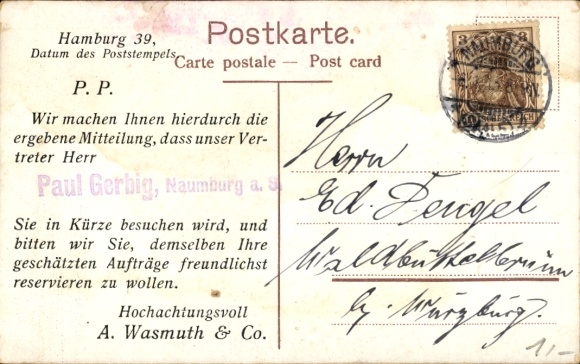 Postkarte.
Carte postale — Post card
Hamburg 39,
Datum des Poststempels
P. P.
Wir machen Ihnen hierdurch die
ergebene Mitteilung, dass unser Ver-
treter Herr
Paul Gerbig, Naumburg a. S.
Sie in Kürze besuchen wird, und
bitten wir Sie, demselben Ihre
geschätzten Aufträge freundlichst
reservieren zu wollen.
Hochachtungsvoll
A. Wasmuth & Co.
3 3
NAUMBURG
Herrn
Ed. Dengel
Waldbüttelbrunn
by Würzburg.
1/-